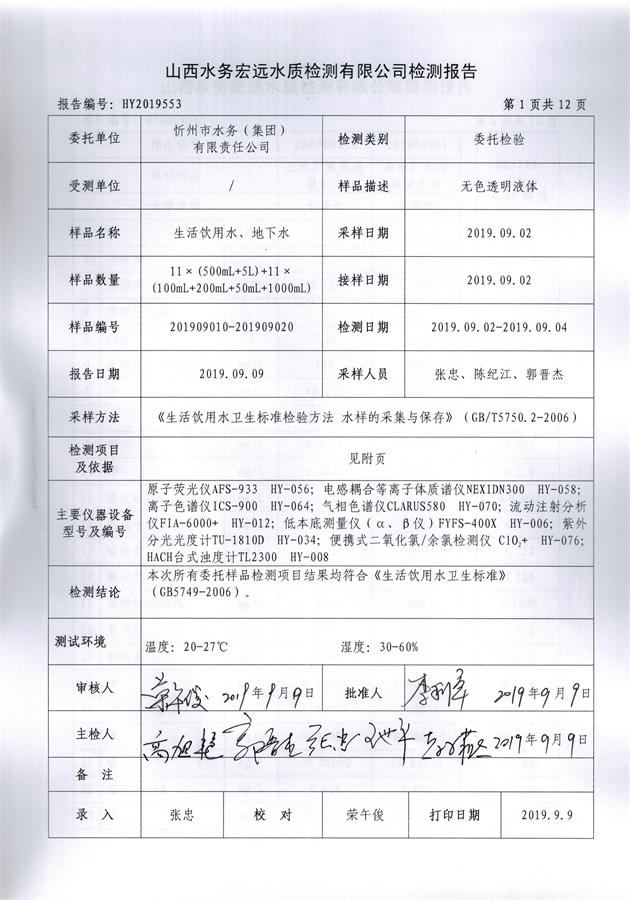 山西水务宏远水质检测有限公司检测报告
报告编号：HY2019553 第 1 页共 12 页
委托单位 忻州市水务（集团）有限责任公司 检测类别 委托检验
受测单位 / 样品描述 无色透明液体
样品名称 生活饮用水、地下水 采样日期 2019.09.02
样品数量 11×(500mL+5L)+11×(100mL+200mL+50mL+1000mL) 接样日期 2019.09.02
样品编号 201909010-201909020 检测日期 2019.09.02-2019.09.04
报告日期 2019.09.09 采样人员 张忠、陈纪江、郭晋杰
采样方法 《生活饮用水卫生标准检验方法 水样的采集与保存》（GB/T5750.2-2006）
检测项目及依据 见附页
主要仪器设备型号及编号
原子荧光仪AFS-933 HY-056；电感耦合等离子体质谱仪NEXIDN300 HY-058；
离子色谱仪ICS-900 HY-064；气相色谱仪CLARUS580 HY-070；流动注射分析
仪FIA-6000+ HY-012；低本底测量仪（α、β仪）FYFS-400X HY-006；紫外
分光光度计TU-1810D HY-034；便携式二氧化氯/余氯检测仪 ClO₂+ HY-076；
HACH台式浊度计TL2300 HY-008
检测结论
本次所有委托样品检测项目结果均符合《生活饮用水卫生标准》
（GB5749-2006）。
测试环境 温度：20-27℃ 湿度：30-60%
审核人 荣午俊 2019年9月9日 批准人 2019年9月9日
主检人 高旭艳 张忠 2019年9月9日
备 注
录 入 张忠 校 对 荣午俊 打印日期 2019.9.9